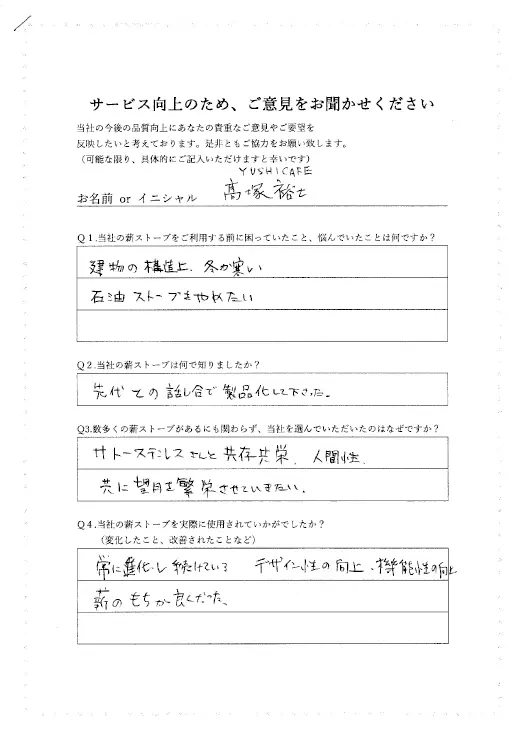 サービス向上のため、ご意見をお聞かせください
当社の今後の品質向上にあなたの貴重なご意見やご要望を
反映したいと考えております。是非ともご協力をお願い致します。
（可能な限り、具体的にご記入いただけますと幸いです）
YUSHI CAFE
お名前 or イニシャル 髙塚裕士
Q１.当社の薪ストーブをご利用する前に困っていたこと、悩んでいたことは何ですか？
建物の構造上、冬が寒い
石油ストーブをやめたい
Q２.当社の薪ストーブは何で知りましたか？
先代との話し合で製品化して下さった。
Q3.数多くの薪ストーブがあるにも関わらず、当社を選んでいただいたのはなぜですか？
サトーステンレスさんと共存共栄、人間性、
共に望月を繁栄させていきたい。
Q４.当社の薪ストーブを実際に使用されていかがでしたか？
（変化したこと、改善されたことなど）
常に進化し続けている デザイン性の向上、機能性の向上
薪のもちが良くなった、